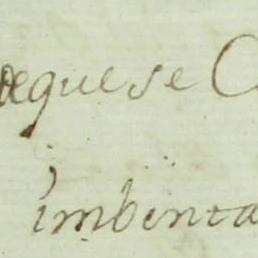 deque se C
imbenta